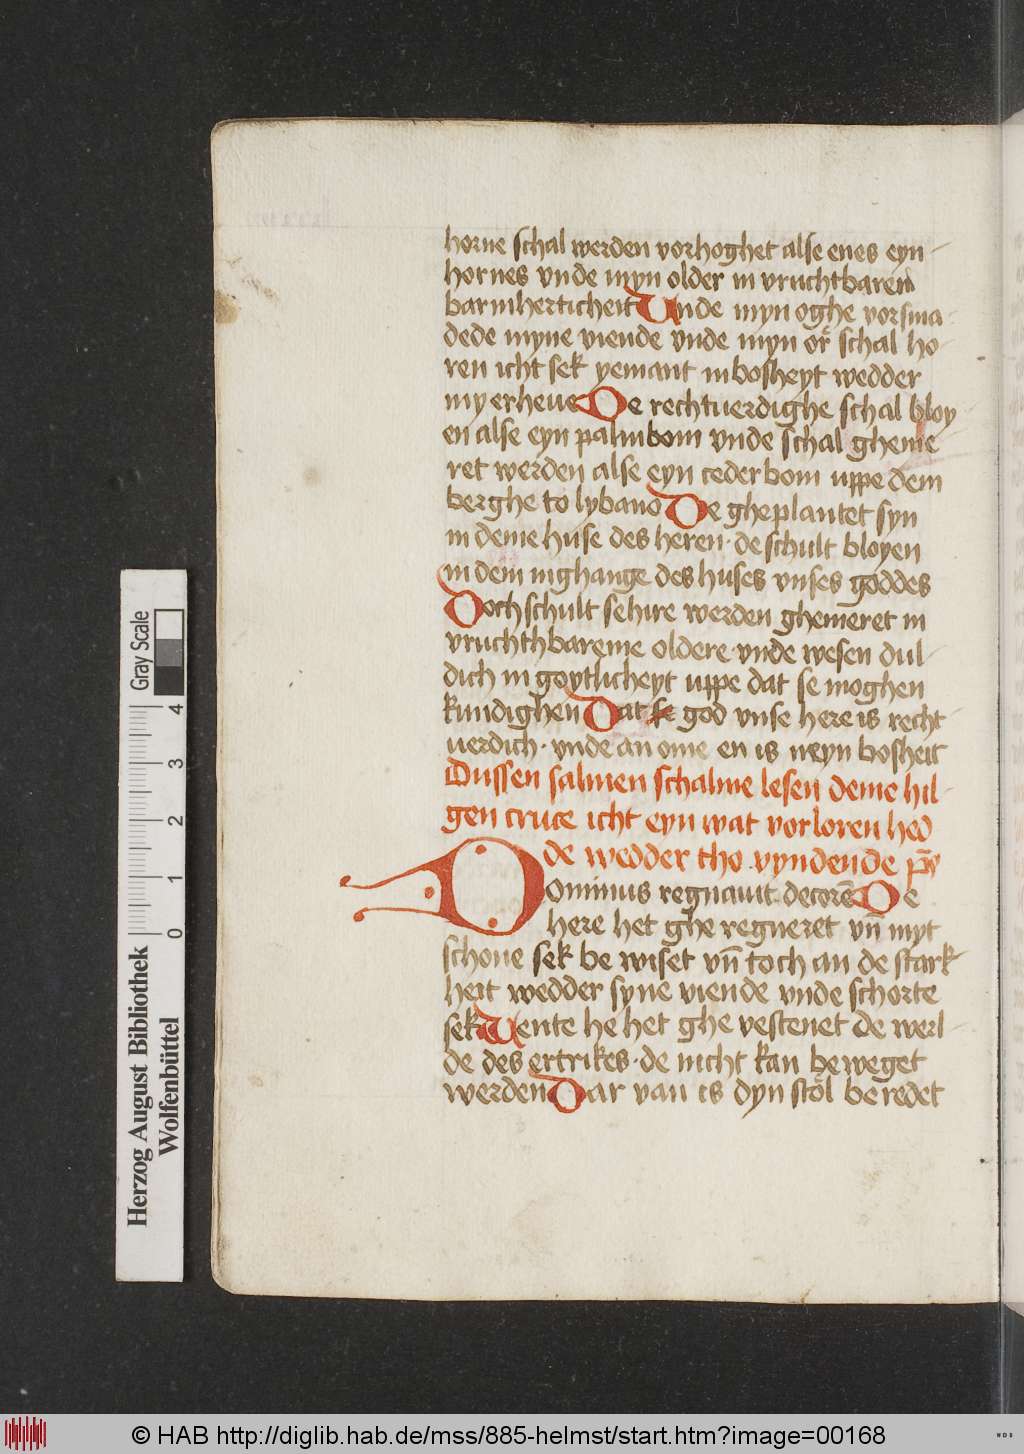 horne schal werden vorhoghet alse enes eyn-
hornes vnde myn older in vruchtbaren
barmherticheit Unde myn oghe vorsma-
dede myne viende vnde myn or schal ho-
ren icht sek yemant in bosheyt wedder
my erheue De rechtuerdighe schal bloy-
en alse eyn palmbom vnde schal gheme
ret werden alse eyn cederbom uppe dem
berghe to lybano De gheplantet syn
in deme huse des heren · de schult bloyen
in dem inghange des huses vnses goddes
Doch schult se hire werden ghemeret in
vruchthbareme oldere · vnde wesen dul-
dich in goytlicheyt uppe dat se moghen
kundighen Dat se god vnse here is recht-
uerdich · vnde an ome en is neyn bosheit
Dussen salmen schalme lesen deme hil-
gen cruce icht eyn wat vorloren hed
de wedder tho vyndende ps
Dominus regnauit · decorē De
here het ghe regneret vn̄ myt
schone sek be wiset vn̄ toch an de stark-
heit wedder syne viende vnde schorte
sek Wente he het ghe vestenet de werl-
de des ertrikes · de nicht kan beweget
werden Dar van is dyn stol beredet
Herzog August Bibliothek
Wolfenbüttel
0 1 2 3 4
Gray Scale
© HAB http://diglib.hab.de/mss/885-helmst/start.htm?image=00168